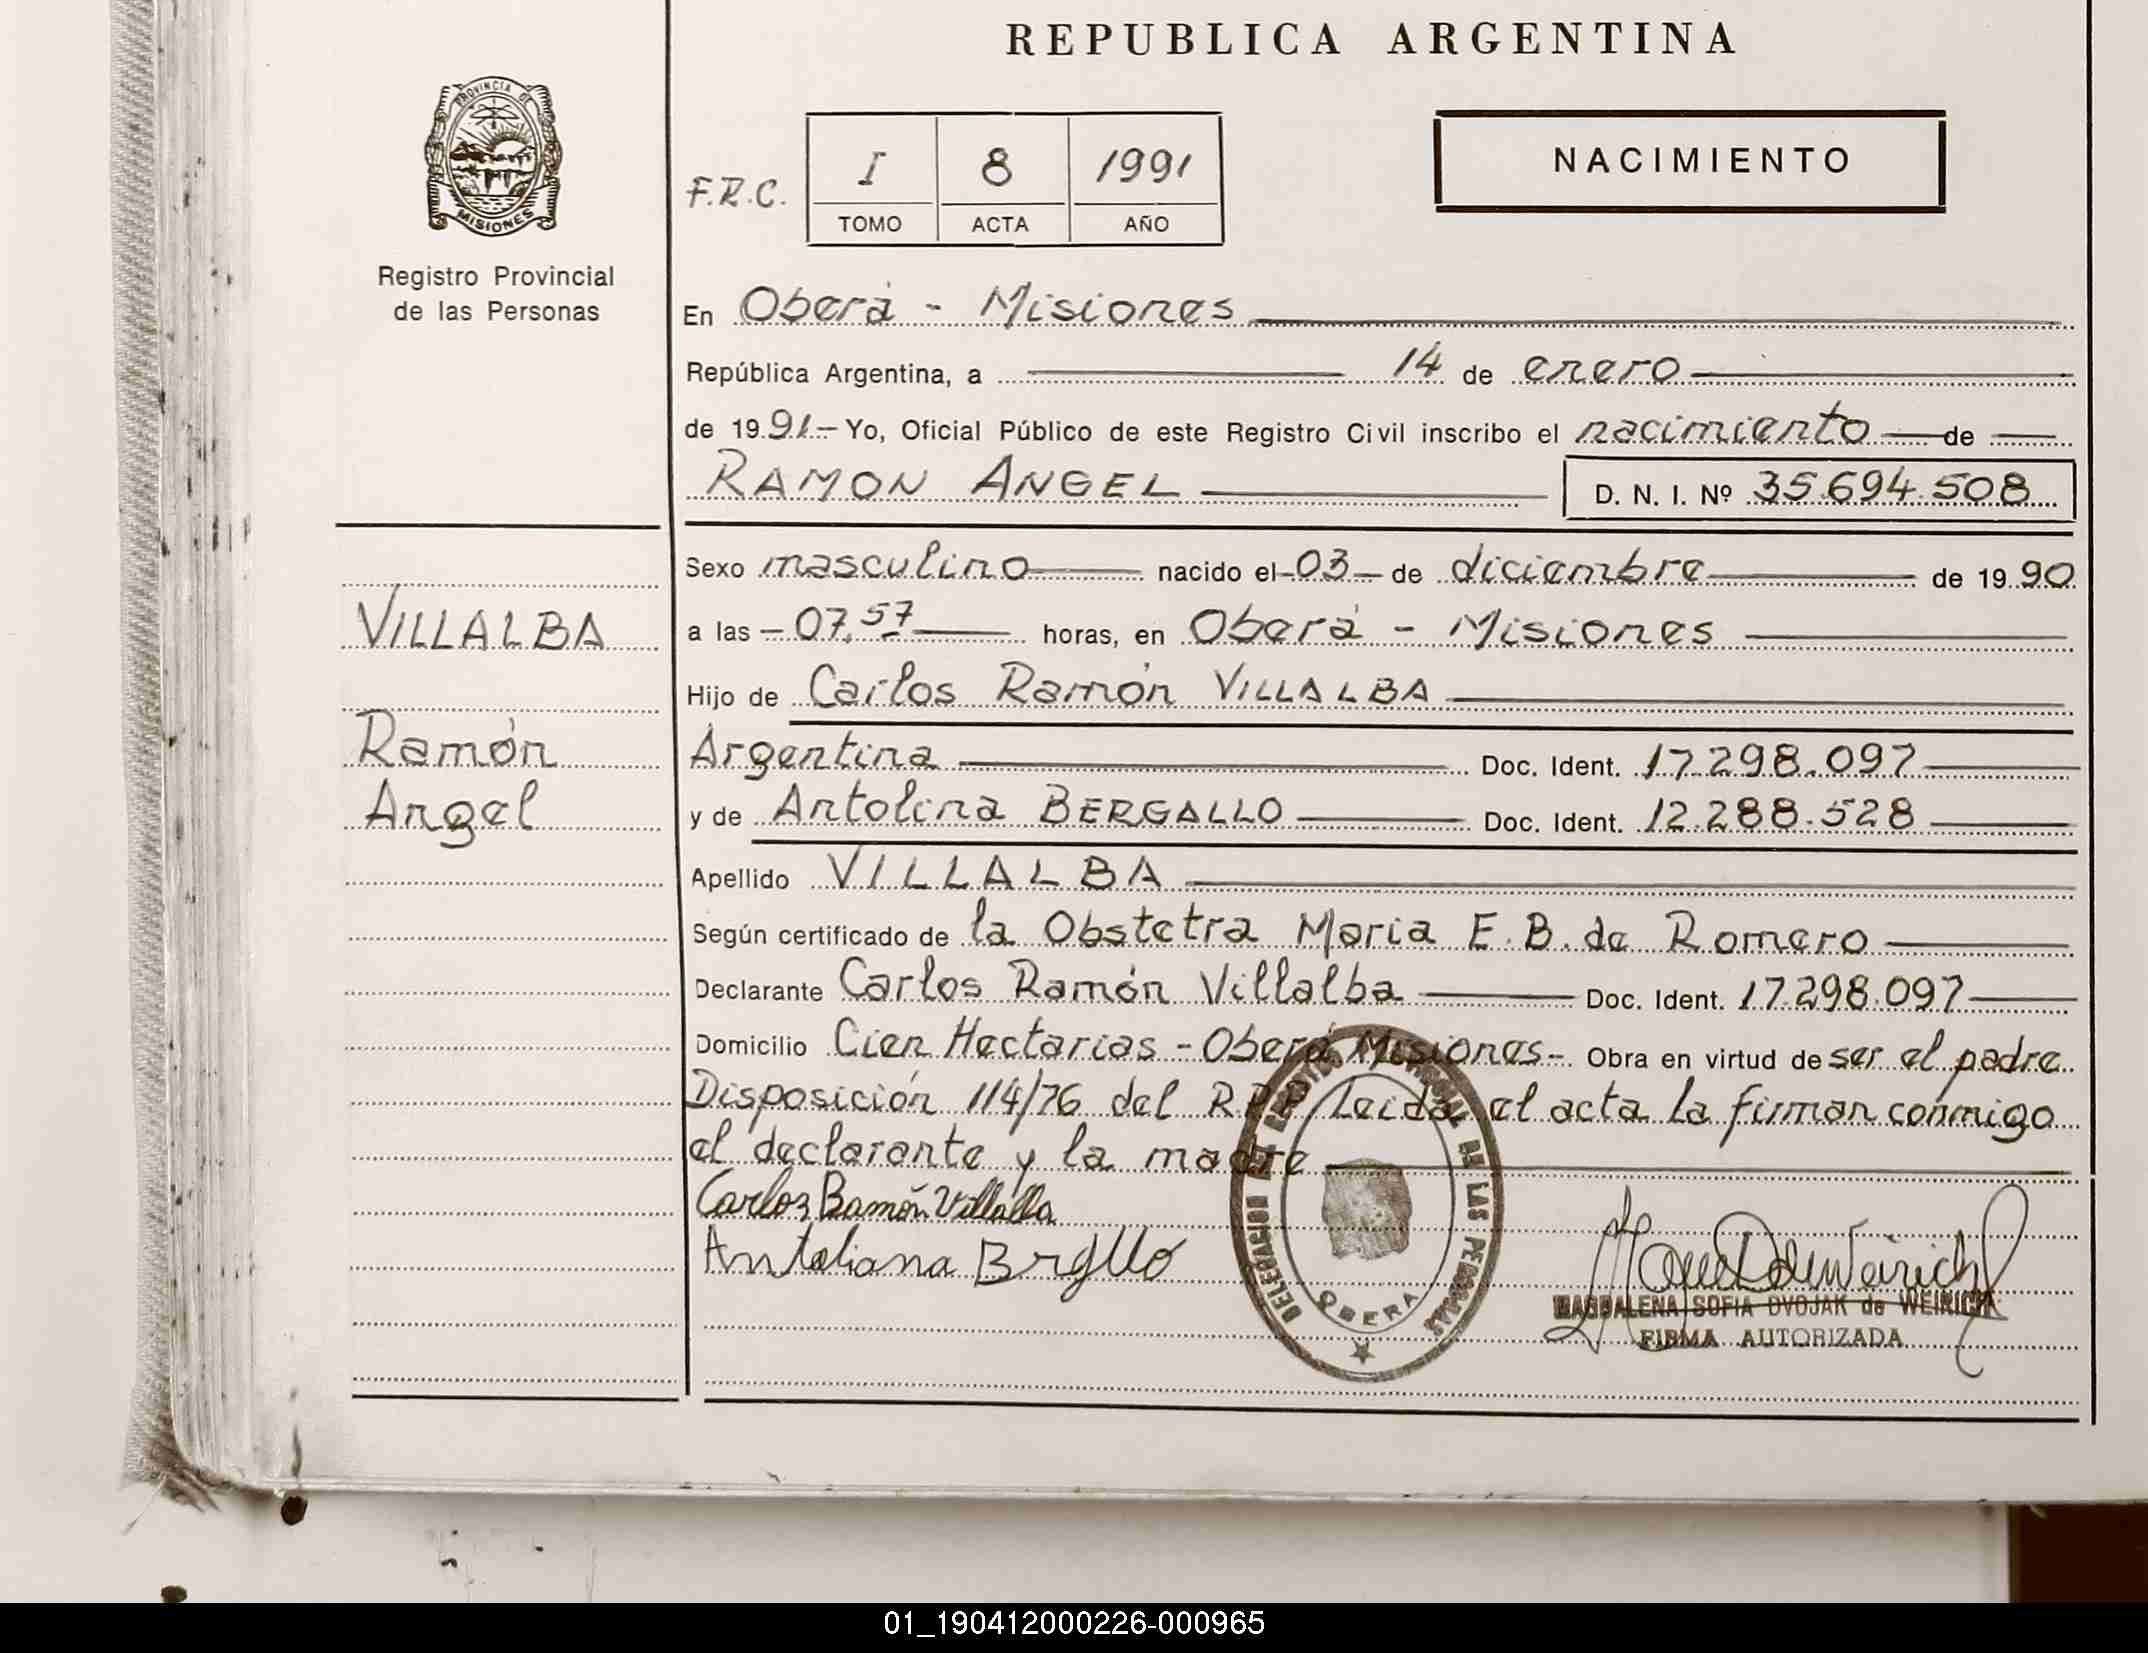 REPUBLICA ARGENTINA
PROVINCIA DE
MISIONES
Registro Provincial
de las Personas
F.R.C.
I 8 1991
TOMO ACTA AÑO
NACIMIENTO
En Oberá - Misiones
República Argentina, a 14 de enero
de 1991- Yo, Oficial Público de este Registro Civil inscribo el nacimiento de
RAMON ANGEL D. N. I. Nº 35.694.508
Sexo masculino nacido el 03 de diciembre de 1990
a las 07,57 horas, en Oberá - Misiones
Hijo de Carlos Ramón VILLALBA
Argentina Doc. Ident. 17.298.097
y de Antolina BERGALLO Doc. Ident. 12.288.528
Apellido VILLALBA
Según certificado de la Obstetra Maria E. B. de Romero
Declarante Carlos Ramón Villalba Doc. Ident. 17.298.097
Domicilio Cien Hectarias - Oberá Misiones- Obra en virtud de ser el padre
Disposición 114/76 del RPP Leida el acta la firman conmigo
el declarante y la madre
VILLALBA
Ramón
Angel
Carlos Ramón Villalba
Antoliana Brgllo
DELEGACION DEL REGISTRO PROVINCIAL DE LAS PERSONAS
OBERA
MAGDALENA SOFIA DVOJAK de WEIRICH
FIRMA AUTORIZADA
01_190412000226-000965